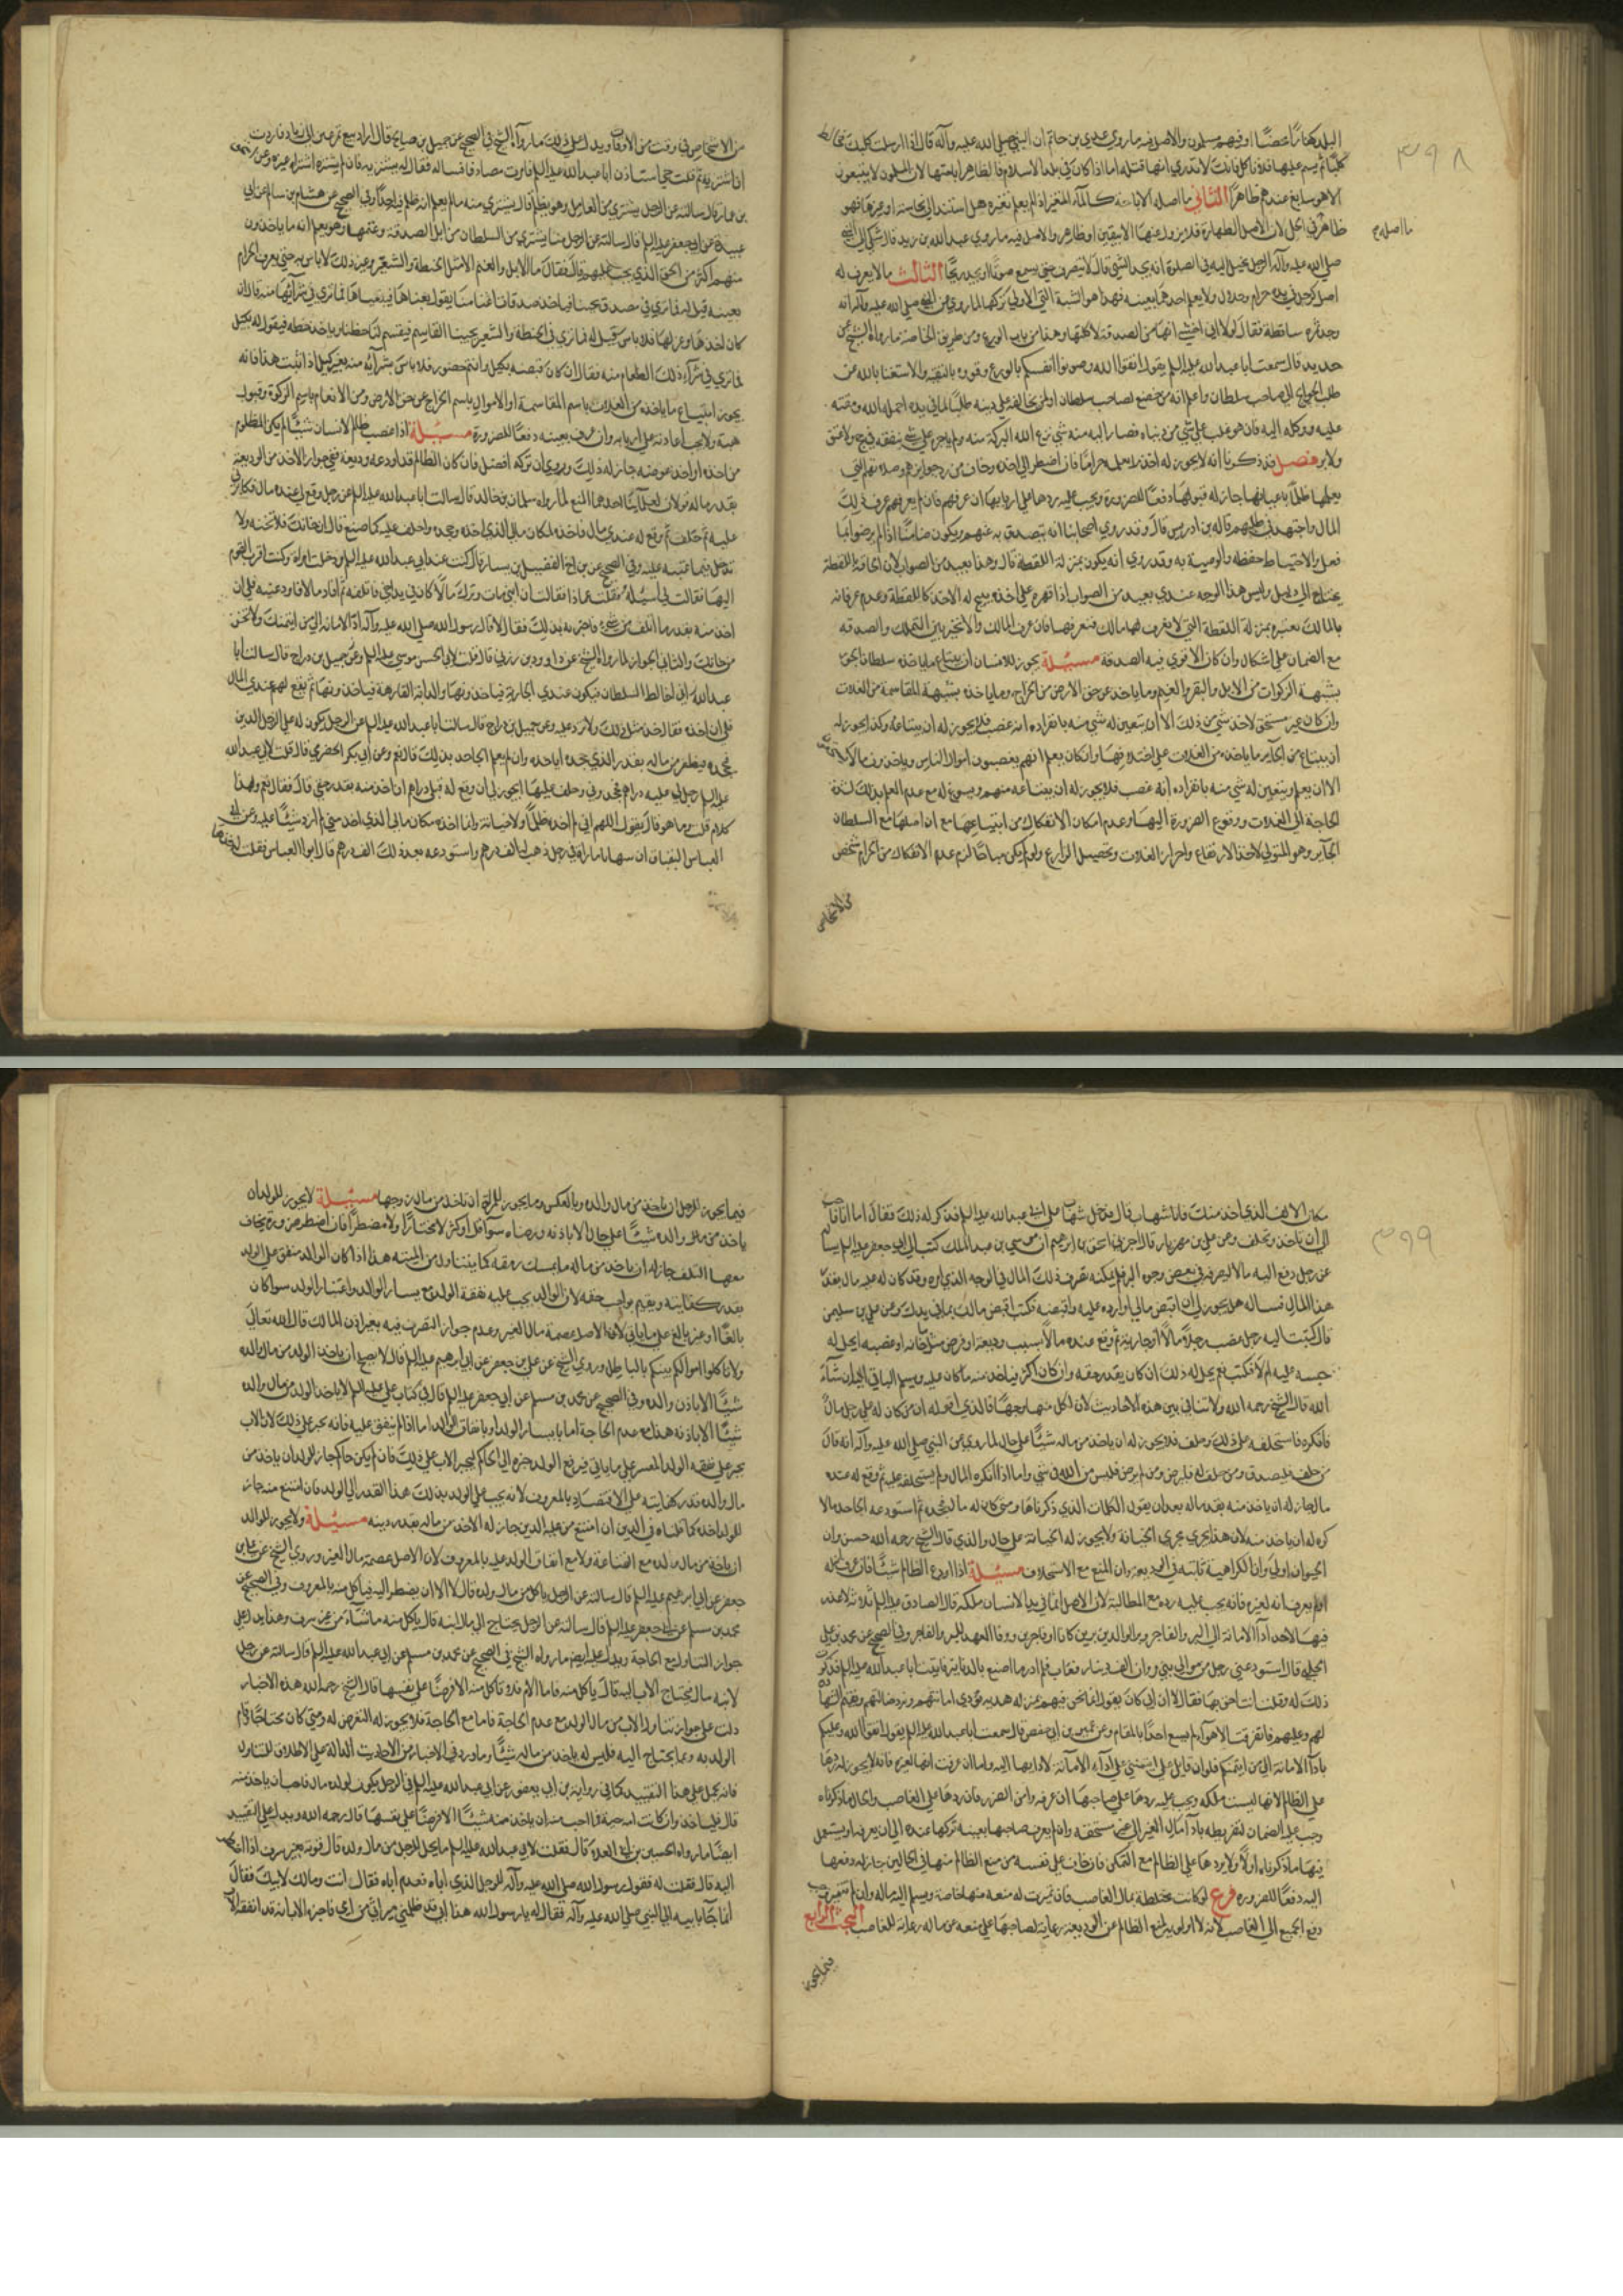 ٣٩٨
البلد كفارًا ايضًا او فيهم مسلمون والاصل فيه ما روي عدي بن حاتم ان النبي صلى الله عليه وآله قال اذا ارسلت كلبك فخالط
كلبًا لم يسم عليها فلا تاكل فانك لا تدري ايهما قتله اما اذا كان في بلد الاسلام فالظاهر اباحتها لان المسلمون لا يبيعون
الا هو سايغ عندهم ظاهرًا الثاني ما اصله الاباحة كالمآء المتغير اذا لم يعلم تغيره هل استند الى نجاسة او غيرها فهو
ما اصله
ظاهر في الحكم لان الاصل الطهارة فلا يزول عنها الا بيقين او ظاهر والاصل فيه ما روي عبد الله بن زيد قال شكي الى النبي
صلى الله عليه وآله الرجل يخيل اليه في الصلوة انه يجد الشيء قال لا ينصرف حتى يسمع صوتًا او يجد ريحًا الثالث ما لا يعرف له
اصل كرجل في ماله حرام وحلال ولا يعلم احدهما بعينه فهذا هو الشبهة التي الاولى تركها لما روي عن النبي صلى الله عليه وآله انه
وجد تمرة ساقطة فقال لولا اني اخشى انها من الصدقة لاكلتها وهذا من باب الورع ومن طريق الخاصة ما رواه الشيخ عن
حديد قال سمعت ابا عبد الله عليه السلم يقول اتقوا الله وصونوا انفسكم بالورع وقووه بالتقية والاستغنا بالله عن
طلب الحوايج الى صاحب سلطان واعلم انه من خضع لصاحب سلطان او لمن يخالفه على دينه طلبًا لما في يده اخمله الله ومقته
عليه ووكله اليه فان هو غلب على شي من دنياه فصار اليه منه شي نزع الله البركة منه ولم ياجره على شي ينفقه في حج ولا عتق
ولا بر فصل قد ذكرنا انه لا يجوز له اخذ ما يعلمه حرامًا فان اضطر الى اخذه وخاف من رد جوايزهم وصلاتهم التي
يعلمها ظلمًا باعيانها جاز له قبولها دفعًا للضرورة ويجب عليه ردها على اربابها ان عرفهم فان لم يعرفهم عرف ذلك
المال واجتهد في طلبهم قاله بن ادريس قال وقد روي اصحابنا انه يتصدق به عنهم ويكون ضامنًا اذا لم يرضوا بما
فعل والاحتياط حفظه والوصية به وقد روي انه يكون بمنزلة اللقطة قال وهذا بعيد من الصواب لان الحاقه باللقطة
يحتاج الى دليل وليس هذا الوجه عندي بعيد من الصواب اذا قهره على اخذه يبيح له الاخذ كاللقطة وعدم عرفانه
بالمالك يصيره بمنزلة اللقطة التي لا يعرف لها مالك فتعرفها فان عرف المالك والا تخير بين التملك والصدقه
مع الضمان على اشكال وان كان الاقوي فيه الصدقة مسئلة يجوز للانسان ان يبتاع ما ياخذه سلطان الجور
بشبهة الزكوات من الابل والبقر والغنم وما ياخذه عن حق الارض من الخراج وما ياخذه بشبهة المقاسمة من الغلات
وان كان غير مستحق لاخذ شي من ذلك الا ان يتعين له شي منه بانفراده انه غصب فلا يجوز له ان يبتاعه وكذا يجوز له
ان يبتاع من الجاير ما ياخذه من الغلات على اختلافها وان كان يعلم انهم يغصبون اموال الناس وياخذون ما لا
الا ان يعلم ويتعين له شي منه بانفراده انه غصب فلا يجوز له ان يبتاعه منهم ويسوغ له مع عدم العلم بذلك لشدة
الحاجة الى الغلات ووقوع الضرورة اليها وعدم امكان الانفكاك من ابتياعها مع ان اصلها مع السلطان
الجآير وهو المتولي لاخذ الارتفاع واحراز الغلات وتحصيل الزارع ولو لم يكن مباحًا لزم عدم الانفكاك من الحرام لشخص
من الاشخاص
من الاشخاص في وقت من الاوقات ويدل على ذلك ما رواه الشيخ في الصحيح عن جميل بن صالح قال اراد بيع تمر عين ابي زياد فاردت
ان اشتريه ثم قلت حتى استاذن ابا عبد الله عليه السلم فامرت مصادفًا فساله فقال له يشتريه فان لم يشتره اشتراه غيره وعن
بن عمار قال سالته عن الرجل يشتري من العامل وهو يظلم قال يشتري منه ما لم يعلم انه ظلم فيه احدًا وفي الصحيح عن هشام بن سالم عن ابي
عبيدة عن ابي جعفر عليه السلم قال سالته عن الرجل منا يشتري من السلطان من ابل الصدقة وغنمها وهو يعلم انه ما ياخذون
منهم اكثر من الحق الذي يجب عليهم قال فقال ما الابل والغنم الا مثل الحنطة والشعير وغير ذلك لا باس به حتى يعرف الحرام
بعينه قيل له فما تري في مصدق يجيئنا فياخذ صدقات اغنامنا يقول بعناها فيبيعناها فما تري في شرآئها منه قال ان
كان اخذها وعزلها فلا باس قيل له فما تري في الحنطة والشعير يجيئنا القاسم فيقسم لنا حظنا وياخذ حظه فيعزله بكيل
فما تري في شرآء ذلك الطعام منه فقال ان كان قبضه بكيل وانتم حضور فلا باس بشرآئه منه بغير كيل اذا ثبت هذا فانه
يجوز ابتياع ما ياخذه من الغلات باسم المقاسمة او الاموال باسم الخراج عن حق الارض ومن الانعام باسم الزكوة وقبوله
هبة ولا يجب اعادته على اربابه وان عرف بعينه دفعًا للضرورة مسئلة اذا غصب ظالم لانسان شيئًا لم يكن المظلوم
من اخذه او اخذ عوضه جاز له ذلك وروي ان تركه افضل فان كان الظالم قد اودعه وديعة ففي جواز الاخذ من الوديعة
بقدر ماله قولان لعلمآئنا احدهما المنع لما رواه سليمان بن خالد قال سالت ابا عبد الله عليه السلم عن رجل وقع لي عنده مال فكابرني
عليه ثم حلف ثم وقع له عندي مال فاخذه لمكان مالي الذي اخذه وجحده واحلف عليه كما صنع قال ان خانك فلا تخنه ولا
تدخل فيما عتبته عليه وفي الصحيح عن بن اخ الفضيل بن يسار قال كنت عند ابي عبد الله عليه السلم ودخلت امراة وكنت اقرب القوم
اليها فقالت لي اسئله فقلت عماذا فقالت ان ابني مات وترك مالًا كان في يد اخي فاتلفه ثم افاد مالًا فاودعنيه فلي ان
اخذ منه بقدر ما اتلف من شيء فاخبرته بذلك فقال لا قال رسول الله صلى الله عليه وآله ادّ الامانة الى من ائتمنك ولا تخن
من خانك والثاني الجواز لما رواه الشيخ عن داوود بن رزبي قال قلت لابي الحسن موسي عليه السلم وعن جميل بن دراج قال سالت ابا
عبد الله اني اخالط السلطان فيكون عندي الجارية فياخذونها والدابة الفارهة فياخذونها ثم يقع لهم عندي المال
فلي ان اخذه فقال خذ مثل ذلك ولا تزد عليه وعن جميل بن دراج قال سالت ابا عبد الله عليه السلم عن الرجل يكون له على الرجل الدين
فيجحده فيظفر من ماله بقدر الذي جحده اياخذه وان لم يعلم الجاحد بذلك قال نعم وعن ابي بكر الحضرمي قال قلت لابي عبد الله
عليه السلم رجل لي عليه دراهم فجحدني وحلف عليها ايجوز لي ان وقع له قبلي دراهم ان اخذ منه بقدر حقي قال فقال نعم ولهذا
كلام قلت وما هو قال يقول اللهم اني لم اخذه ظلمًا ولا خيانة وانما اخذته مكان مالي الذي اخذ مني لم ازدد شيئًا عليه وعن ابي
العباس البقباق ان شهابًا ماراه في رجل ذهب له بالف درهم واستودعه بعد ذلك الف درهم قال ابو العباس فقلت له خذها
٣٩٩
مكان الالف الذي اخذ منك فابا شهاب قال فدخل شهاب على ابي عبد الله عليه السلم فذكر له ذلك فقال اما انا فاحب
الي ان تاخذ وتحلف وعن علي بن مهزيار قال اخبرني اسحق بن ابراهيم ان موسي بن عبد الملك كتب الى ابي جعفر عليه السلم يساله
عن رجل دفع اليه مالًا ليصرفه في بعض وجوه البر فلم يمكنه صرف ذلك المال في الوجه الذي امره وقد كان له عليه مال بقدر
هذا المال فساله هل يجوز لي ان اقبض مالي او ارده عليه واقتضيه فكتب اقبض مالك مما في يدك وعن علي بن سليمن
قال كتبت اليه رجل غصب رجلًا مالًا او جارية ثم وقع عنده مالًا بسبب وديعة او قرض مثل ما خانه او غصبه ايحل له
حبسه عليه ام لا فكتب نعم يحل له ذلك ان كان بقدر حقه وان كان اكثر فياخذ منه ما كان عليه ويسلم الباقي اليه ان شآء
الله قال الشيخ رحمه الله ولا تنافي بين هذه الاحاديث لان لكل منها وجهًا فالذي اقوله ان من كان له على رجل مالٌ
فانكره فاستحلفه على ذلك وحلف فلا يجوز له ان ياخذ من ماله شيئًا على حال لما روي عن النبي صلى الله عليه وآله انه قال
من حلف فليصدق ومن حلف له فليرض ومن لم يرض فليس من الله في شي واما اذا انكره المال ولم يستحلفه عليه ثم وقع له عنده
مال جاز له ان ياخذ منه بقدر ماله بعد ان يقول الكلمات الذي ذكرناها ومتى كان له مال فجحده ثم استودعه الجاحد مالًا
كره له ان ياخذ منه لان هذا يجري مجري الخيانة ولا يجوز له الخيانة على حال والذي قال الشيخ رحمه الله حسن وان
الجواز اولى وان الكراهية ثابتة في الوديعة وان المنع مع الاستحلاف مسئلة اذا اودع الظالم شيئًا فان عرف انه له
او لم يعرف انه لغيره فانه يجب عليه رده مع المطالبة لان الاصل ان ما في يد الانسان ملكه قال الصادق عليه السلم ثلاثة لا عذر
فيها لاحد ادآ الامانة الى البر والفاجر وبر الوالدين برين كانا او فاجرين ووفا العهد للبر والفاجر وفي الصحيح عن محمد بن علي
الحلبي قال استودعني رجل من موالي بني مروان الف دينار فغاب فلم ادر ما اصنع بالدنانير فاتيت ابا عبد الله عليه السلم فذكرت
ذلك له وقلت انت احق بها فقال لا ان ابي كان يقول انما نحن فيهم بمنزلة هدنة نؤدي امانتهم ونرد ضالتهم ونقيم الشهادة
لهم وعليهم فاذا تفرقت الاهوآء لم يسع احدًا المقام وعن عمر بن ابي حفص قال سمعت ابا عبد الله عليه السلم يقول اتقوا الله وعليكم
بادآ الامانة الى من ائتمنكم فلو ان قاتل علي ائتمنني على ادآء الامانة لاديتها اليه واما ان عرفت انها لغيره فانه لا يجوز له ردها
على الظالم لانها ليست ملكه ويجب عليه ردها على صاحبها ان عرفه وامن الضرر فان ردها على الغاصب والحال ما ذكرناه
وجب عليه الضمان لتفريطه بادآ مال الغير الى غير مستحقه وان لم يعرف صاحبها بعينه تركها عنده الى ان يعرفه او يستعمل
فيها ما ذكرناه اولًا ولا يردها على الظالم مع التمكن فان خاف على نفسه من منع الظالم منها في الحالين جاز له دفعها
اليه دفعًا للضرورة فرع لو كانت مختلطة بمال الغاصب فان تميزت له منعه منها خاصة ويسلم اليه ماله وان لم تتميز وجب
دفع الجميع الى الغاصب لانه لا اولوية لمنع الظالم عن الوديعة رعاية لصاحبها على منعه عن ماله رعاية للغاصب البحث الرابع
فيما يجوز
فيما يجوز للرجل ان ياخذ من مال والده وبالعكس وما يجوز للمراة ان تاخذ من مال زوجها مسئلة لا يجوز للولد ان
ياخذ من مال والده شيئًا على حال الا باذنه ورضاه سوآ قل او كثر لا مختارًا ولا مضطرًا فان اضطر ضرورة يخاف
معها التلف جاز له ان ياخذ من ماله ما يمسك رمقه كما يتناول من الميتة هذا اذا كان الوالد ينفق على الولد
بقدر كفايته ويقوم بواجب حقه لان الوالد يجب عليه نفقة الولد مع يسار الوالد واعتبار الولد سوا كان
بالغًا او غير بالغ على ما ياتي لان الاصل عصمة مال الغير وعدم جواز التصرف فيه بغير اذن المالك قال الله تعالى
ولا تاكلوا اموالكم بينكم بالباطل وروي الشيخ عن علي بن جعفر عن ابي ابرهيم عليه السلم قال لا يصلح ان ياخذ الولد من مال والده
شيئًا الا باذن والده وفي الصحيح عن محمد بن مسلم عن ابي جعفر عليه السلم قال في كتاب علي عليه السلم لا ياخذ الولد من مال والده
شيئًا الا باذنه هذا مع عدم الحاجة اما بيسار الولد او بانفاق الوالد اما اذا لم ينفق عليه فانه يجبر على ذلك لان الاب
يجبر على نفقة الولد المعسر على ما ياتي فيرفع الولد خبره الى الحاكم ليجبر الاب على ذلك فان لم يكن حاكم جاز للولد ان ياخذ من
مال والده قدر كفايته على الاقتصاد بالمعروف لانه يجب على الوالد بذلك هذا القدر الى الولد فان امتنع منه جاز
للولد اخذه كما قلناه في الدين ان امتنع من عليه الدين جاز له الاخذ من ماله بقدر دينه مسئلة ولا يجوز للوالد
ان ياخذ من مال ولده مع الغناعة ولا مع انفاق الولد عليه بالمعروف لان الاصل عصمة مال الغير وروي الشيخ عن علي بن
جعفر عن ابي ابرهيم عليه السلم قال سالته عن الرجل ياكل من مال ولده قال لا الا ان يضطر اليه فياكل منه بالمعروف وفي الصحيح عن
محمد بن مسلم عن ابي جعفر عليه السلم قال سالته عن الرجل يحتاج الى مال ابنه قال ياكل منه ما شآء من غير سرف وهذا يدل على
جواز التناول مع الحاجة ويدل عليه ايضًا ما رواه الشيخ في الصحيح عن محمد بن مسلم عن ابي عبد الله عليه السلم قال سالته عن رجل
لابنه مال فيحتاج الاب اليه قال ياكل منه فاما الام فلا تاكل منه الا قرضًا على نفسها قال الشيخ رحمه الله هذه الاخبار
دلت على جواز تناول الاب من مال الولد مع عدم الحاجة فاما مع الحاجة فلا يجوز له التعرض له ومتى كان محتاجًا وقام
الولد به وبما يحتاج اليه فليس له ياخذ من ماله شيئًا وما ورد في الاخبار من الاحاديث الدالة على الاطلاق للتناول
فانه يحمل على هذا التقييد كما في رواية بن ابي يعفور عن ابي عبد الله عليه السلم في الرجل يكون لولده مال فاحب ان ياخذ منه
قال فلياخذ وان كانت امه حية فما احب منه ان ياخذ منه شيئًا الا قرضًا على نفسها قال رحمه الله ويدل على التقييد
ايضًا ما رواه الحسين بن ابي العلا قال فقلت لابي عبد الله عليه السلم ما يحل للرجل من مال ولده قال قوته بغير سرف اذا اضطر
اليه قال فقلت له فقول رسول الله صلى الله عليه وآله للرجل الذي اتاه فقدم اباه فقال انت ومالك لابيك فقال
انما جآء بابيه الى النبي صلى الله عليه وآله فقال له يا رسول الله هذا ابي قد ظلمني ميراثي من امي فاخبره الاب انه قد انفقه